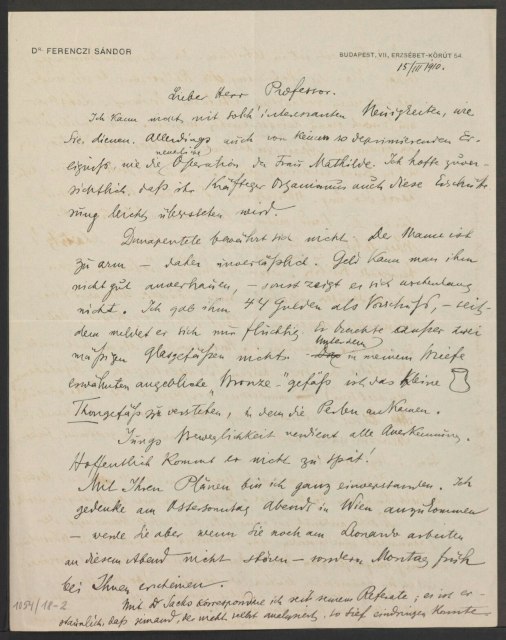 Dr. FERENCZI SÁNDOR
BUDAPEST, VII., ERZSÉBET-KÖRÚT 54.
15/III 1910.
Lieber Herr Professor.
Ich kann nicht mit solch' interessanten Neuigkeiten, wie
Sie, dienen. Allerdings auch von keinem so deprimierenden Er-
eignis, wie die neuerliche Operation der Frau Mathilde. Ich hoffe zuver-
sichtlich, daß ihr kräftiger Organismus auch diese Erschütte
rung leicht überstehen wird.
Dunapentele bewährt sich nicht. Der Mann ist
zu arm — daher unverläßlich. Geld kann man ihm
nicht gut anvertrauen, — sonst zeigt er sich wochenlang
nicht. Ich gab ihm 44 Gulden als Vorschuß, — seit-
dem meldet er sich nur flüchtig. Er brachte außer zwei
mäßigen Glasgefäßen nichts. Unter dem in meinem Briefe
erwähnten angeblichen „Bronze"-gefäß ist das kleine
Thongefäß zu verstehen, in dem die Perlen ankamen.
Jungs Beweglichkeit verdient alle Anerkennung.
Hoffentlich kommt er nicht zu spät!
Mit Ihren Plänen bin ich ganz einverstanden. Ich
gedenke am Ostersonntag Abends in Wien anzukommen
— werde Sie aber wenn Sie noch am Leonardo arbeiten
an diesem Abend nicht stören — sondern Montag früh
bei Ihnen erscheinen.
Mit Dr Sachs korrespondiere ich seit seinem Referate; es ist er-
staunlich, daß jemand, der nicht selbst analysiert, so tief eindringen konnte
1054/18-2